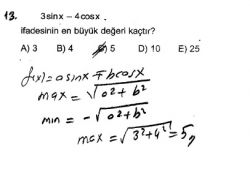 13. 3sinx – 4cosx
ifadesinin en büyük değeri kaçtır?
A) 3 B) 4 C) 5 D) 10 E) 25
f(x)=asinx∓bcosx
max = √a²+b²
min = -√a²+b²
max = √3²+4² = 5,